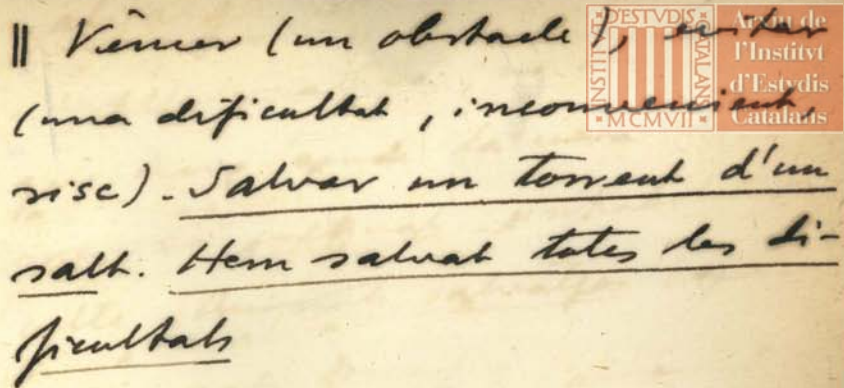 || Vèncer (un obstacle), evitar
(una dificultat, inconvenient,
risc). Salvar un torrent d'un
salt. Hem salvat totes les di-
ficultats
INSTITVT D'ESTVDIS CATALANS
MCMVII
Arxiu de
l'Institvt
d'Estvdis
Catalans